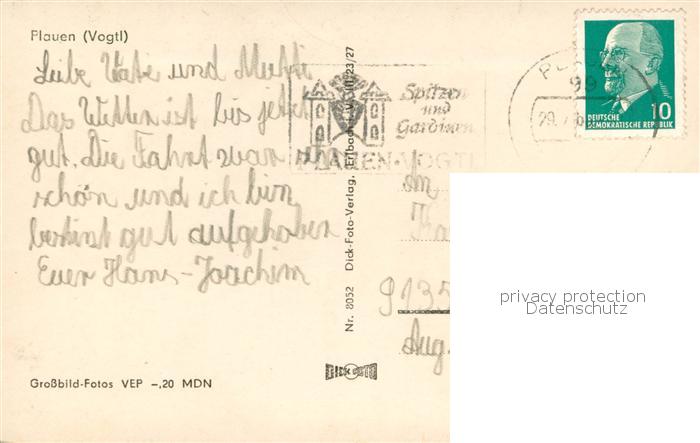 Plauen (Vogtl)
Liebe Vati und Mutti
Das Wetter ist bis jetzt
gut. Die Fahrt war sehr
schön und ich bin
bestens gut aufgehoben
Euer Hans-Joachim
Großbild-Fotos VEP -,20 MDN
Nr. 8052 Dick-Foto-Verlag,
23/27
DICK
Spitzen
und
Gardinen
PLAUEN-VOGTL
99
29.
DEUTSCHE
DEMOKRATISCHE REPUBLIK
10
9135
Aug.
privacy protection
Datenschutz